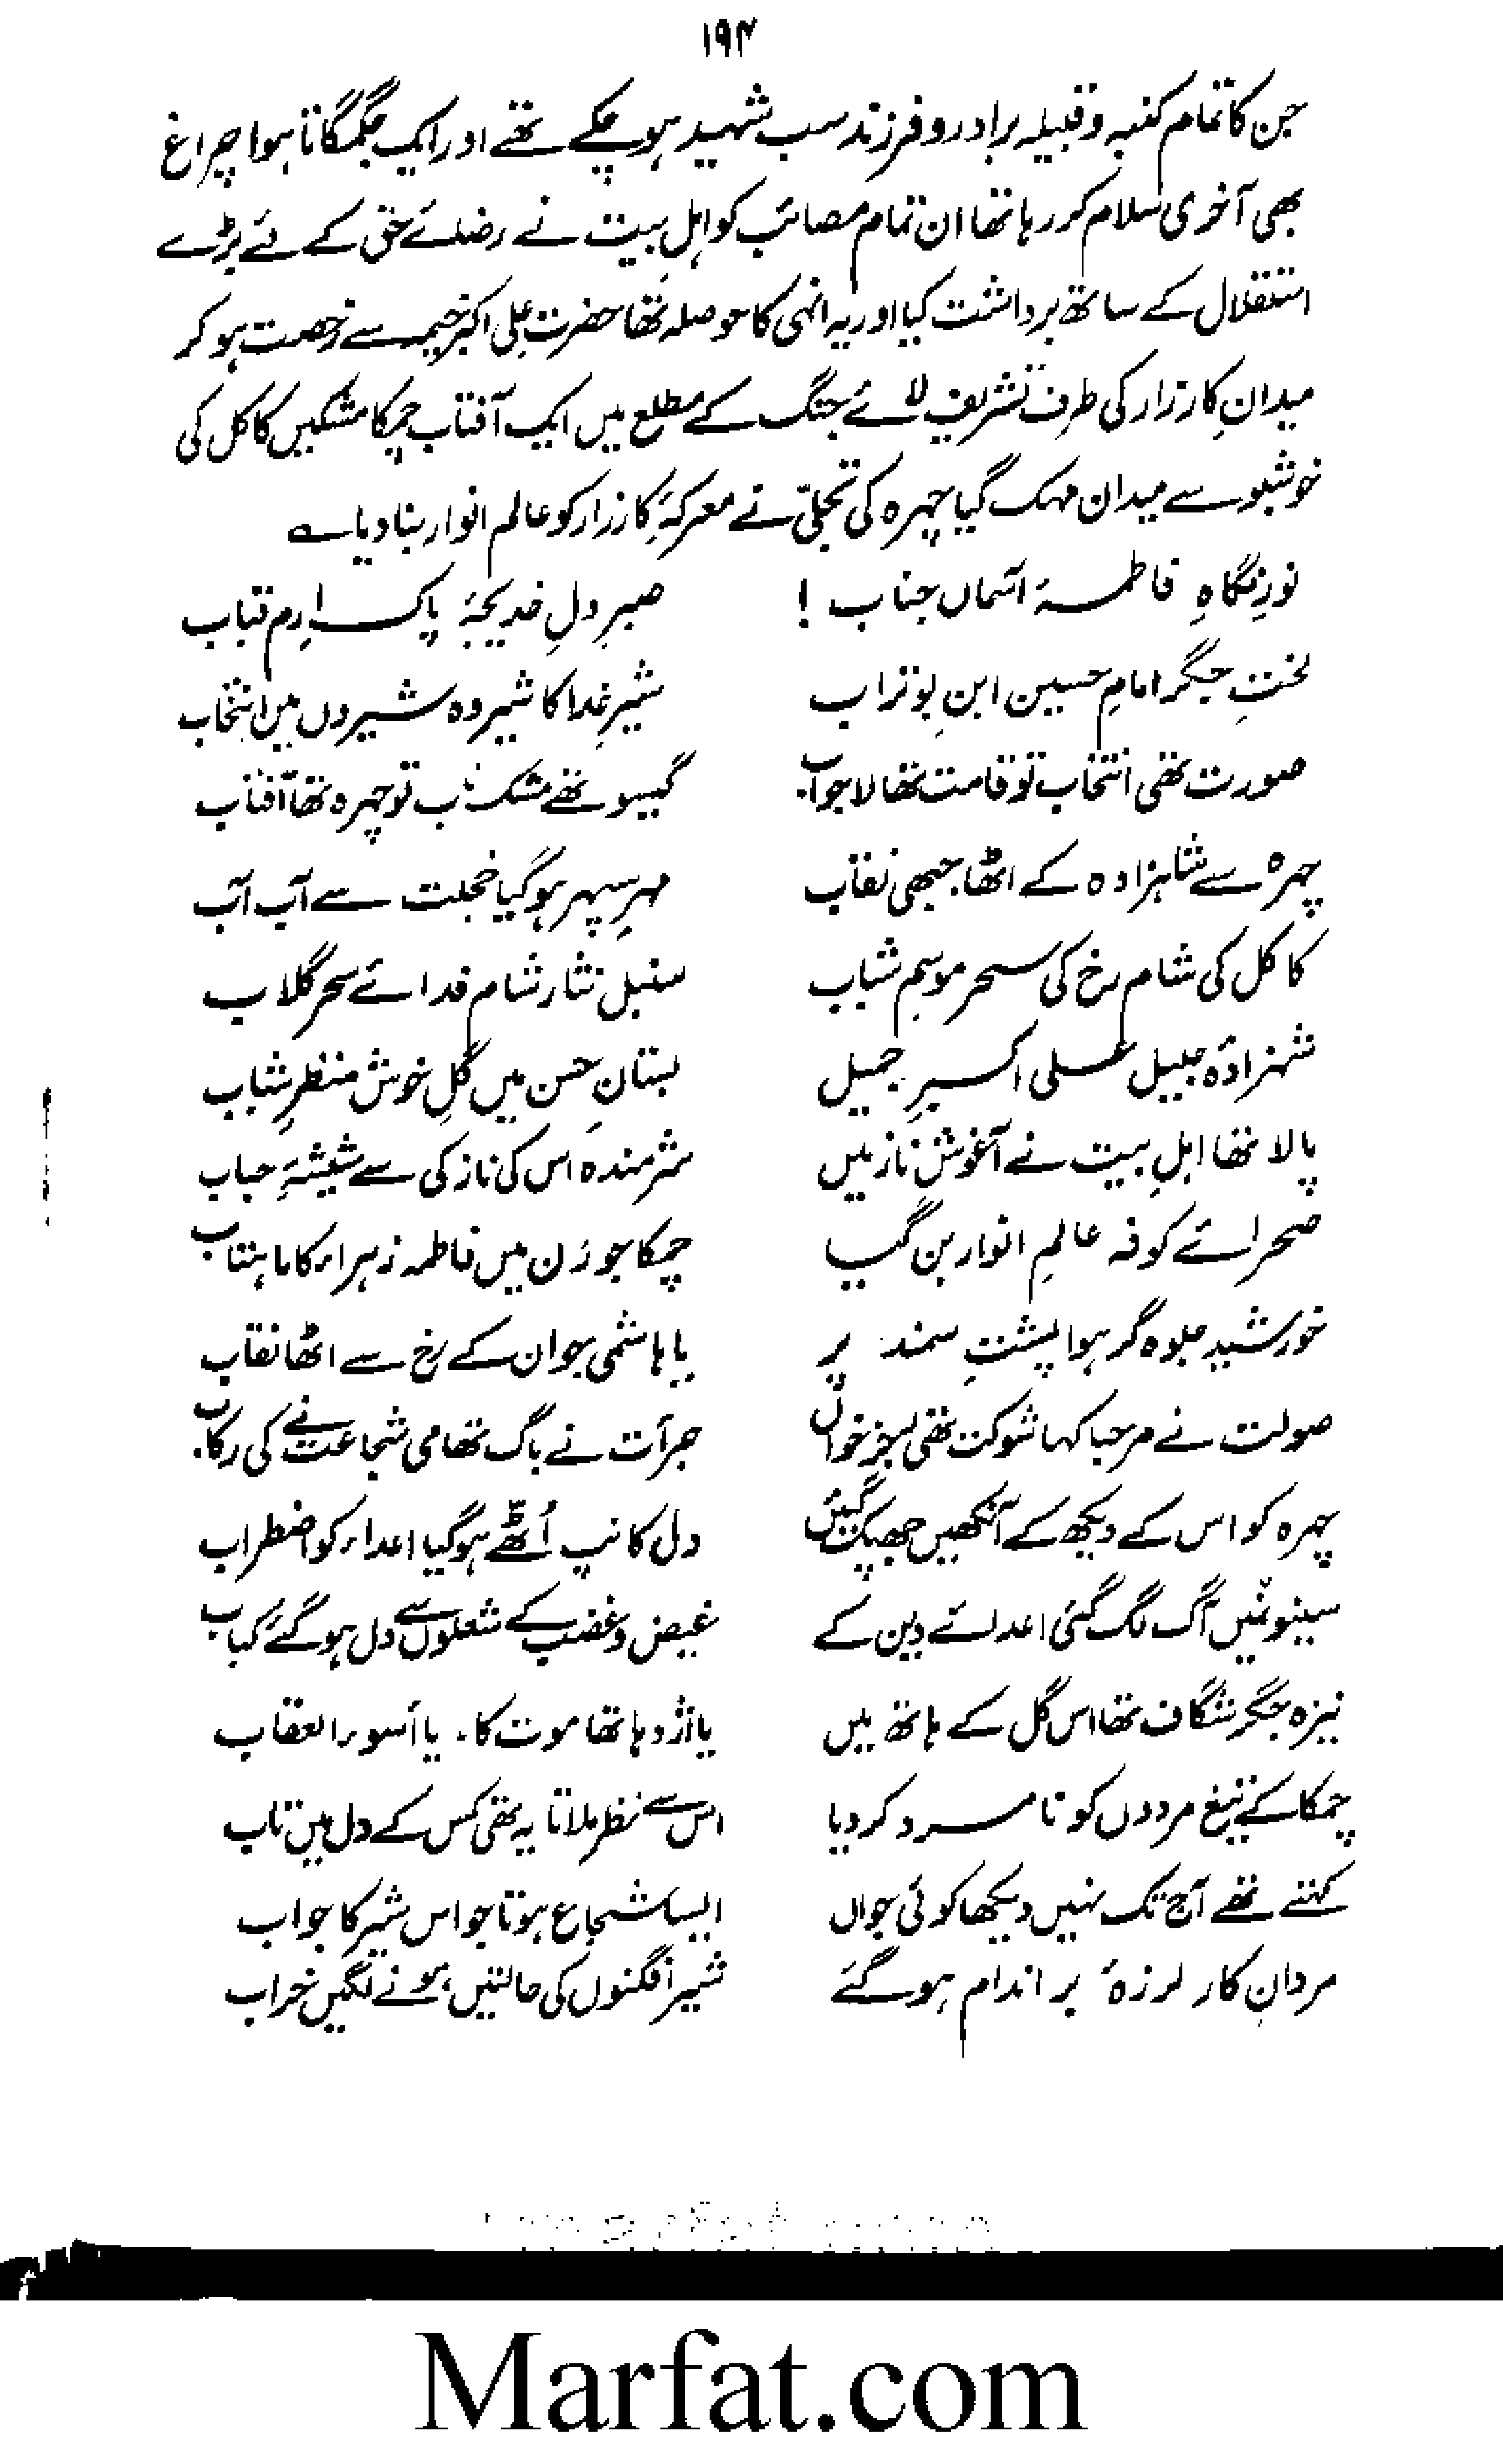 ۱۹۴
جن کا تمام کنبہ و قبیلہ برادر و فرزند سب شہید ہو چکے تھے اور ایک جگمگاتا ہوا چراغ
بھی آخری سلام کر رہا تھا ان تمام مصائب کو اہلِ بیت نے رضائے حق کے لئے بڑے
استقلال کے ساتھ برداشت کیا اور یہ انہی کا حوصلہ تھا حضرت علی اکبر خیمہ سے رخصت ہو کر
میدانِ کارزار کی طرف تشریف لائے جنگ کے مطلع میں ایک آفتاب چمکا مشکیں کاکل کی
خوشبو سے میدان مہک گیا چہرہ کی تجلّی نے معرکۂ کارزار کو عالم انوار بنا دیا ؎
نورِ نگاہِ فاطمۂ آسماں جناب ! صبرِ دلِ خدیجۂ پاک ارم قباب
لختِ جگر امامِ حسین ابنِ بوتراب شیرِ خدا کا شیر وہ شیروں میں انتخاب
صورت تھی انتخاب تو قامت تھا لاجواب گیسو تھے مشک ناب تو چہرہ تھا آفتاب
چہرہ سے شاہزادہ کے اٹھا جبھی نقاب مہرِ سپہر ہو گیا خجلت سے آب آب
کاکل کی شام رخ کی سحر موسمِ شباب سنبل نثار شام فدائے سحر گلاب
شہزادۂ جلیل علی اکبرِ جمیل بستانِ حسن میں گلِ خوش منظر شباب
پالا تھا اہلِ بیت نے آغوش ناز میں شرمندہ اس کی نازکی سے شیشۂ حباب
صحرائے کوفہ عالمِ انوار بن گیا چمکا جو رن میں فاطمہ زہراء کا ماہتاب
خورشید جلوہ گر ہوا پشتِ سمند پر یا ہاشمی جوان کے رخ سے اٹھا نقاب
صولت نے مرحبا کہا شوکت تھی رجز خواں جرأت نے باگ تھامی شجاعت نے کی رکاب
چہرہ کو اس کے دیکھ کے آنکھیں جھپک گئیں دل کانپ اُٹھے ہو گیا اعداء کو اضطراب
سینوں میں آگ لگ گئی اعدائے دین کے غیض و غضب کے شعلوں سے دل ہو گئے کباب
نیزہ جگر شگاف تھا اس گل کے ہاتھ میں یا اژدہا تھا موت کا۔ یا أسوء العقاب
چمکا کے تیغ مردوں کو نامرد کر دیا اس سے نظر ملاتا یہ تھی کس کے دل میں تاب
کہتے تھے آج تک نہیں دیکھا کوئی جواں ایسا شجاع ہوتا جو اس شیر کا جواب
مردانِ کار لرزۂ بر اندام ہو گئے شیر افگنوں کی حالتیں ہونے لگیں خراب
Marfat.com